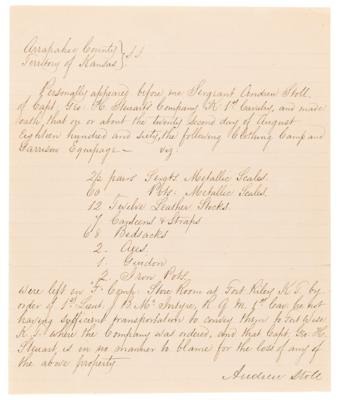 Arrapahoe County } S S
Territory of Kansas
Personally appeared before me Sergeant Andrew Stoll
of Capt. Geo. H. Steuarts Company K 1st Cavalry, and made
oath, that on or about the twenty second day of August
eighteen hundred and sixty, the following Clothing Camp and
Garrison Equipage — viz:
2 pairs Sergts Metallic Scales.
60 Pvts. Metallic Scales.
12 Twelve Leather Stocks.
7 Canteens & Straps
68 Bedsacks
2 Axes.
1 Guidon
2 Iron Pots.
were left in Store Room at Fort Riley K. T. by
order of 1st Lieut. J. B. McIntyre, R. Q. M. 1st Cav. he not
having sufficient transportation to convey them to Fort Wise
K. T. where the Company was ordered, and that Capt. Geo. H.
Steuart, is in no manner to blame for the loss of any of
the above property
Andrew Stoll